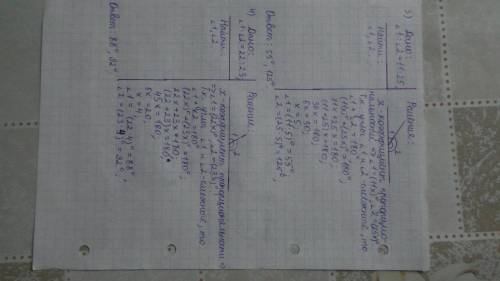 3) Дано:
∠1:∠2=11:25
Найти:
∠1, ∠2
Решение:
x-коэффициент пропорцио-
нальности => ∠1=(11x)°, ∠2=(25x)°
Т.к. углы ∠1 и ∠2-смежной, то
∠1+∠2=180°,
(11x)°+(25x)°=180°;
11x+25x=180,
(11+25)x=180,
36x=180,
x=5;
∠1=(11·5)°=55°
∠2=(25·5)°=125°
Ответ: 55°, 125°
4) Дано:
∠1:∠2=22:23
Найти:
∠1, ∠2
Решение
x-коэффициент пропорциональности =>
∠1=(22x)°, ∠2=(23x)°
Т.к. углы ∠1 и ∠2-смежной, то
∠1+∠2=180°
(22x)°+(23x)°=180°;
22x+23x=180
(22+23)x=180,
45x=180,
x=4;
∠1=(22·4)°=88°
∠2=(23·4)°=92°
Ответ: 88°, 92°